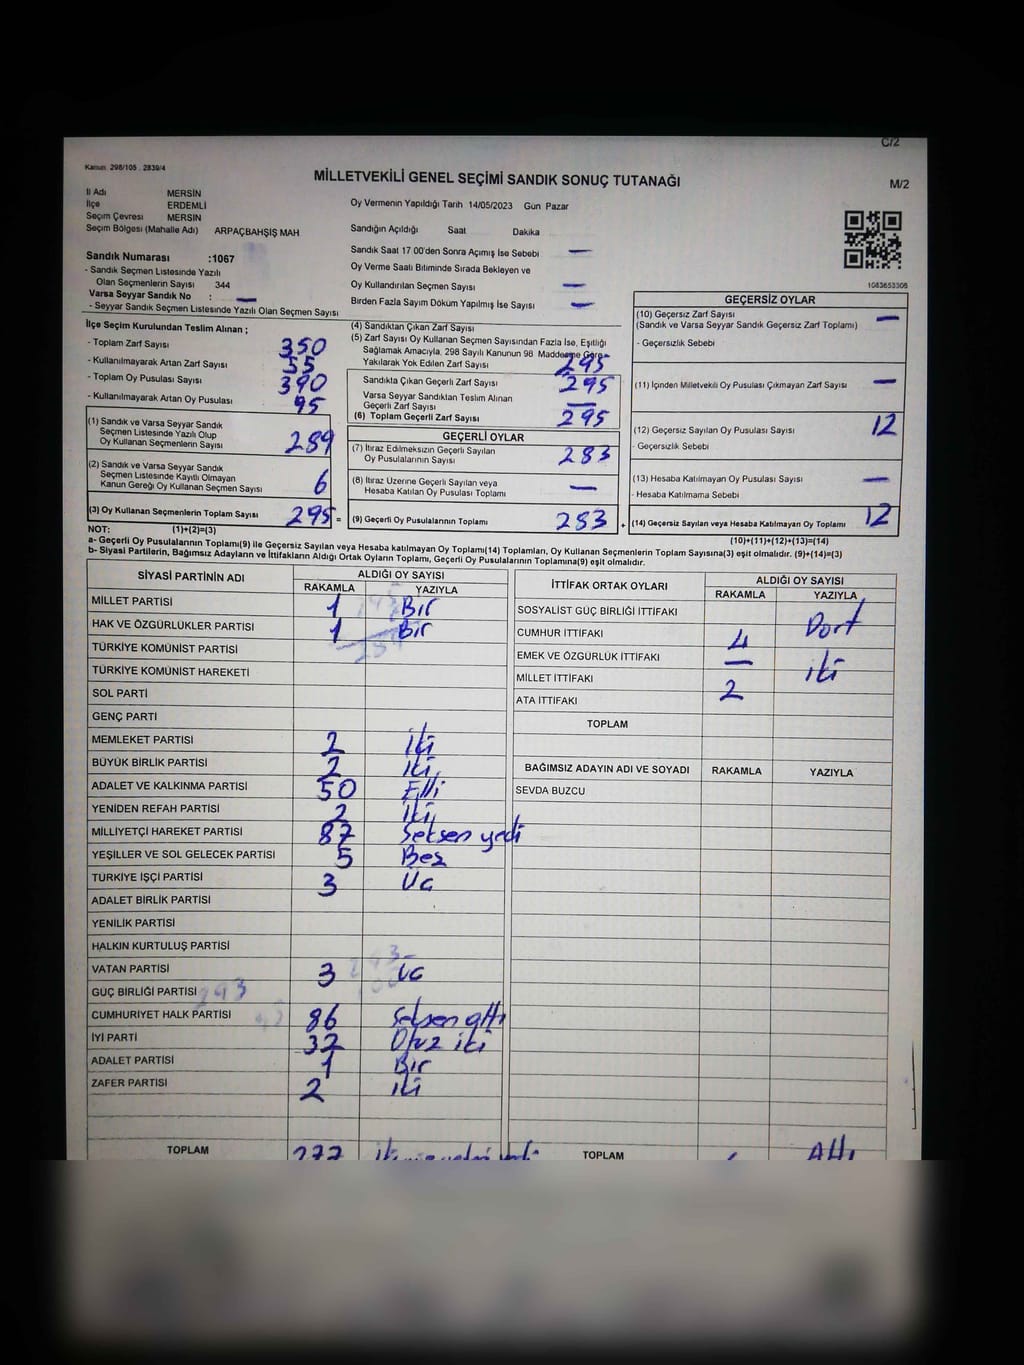 C/2
Kanun 298/105 . 2839/4
MİLLETVEKİLİ GENEL SEÇİMİ SANDIK SONUÇ TUTANAĞI
M/2
İl Adı MERSİN
İlçe ERDEMLİ
Seçim Çevresi MERSİN
Seçim Bölgesi (Mahalle Adı) ARPAÇBAHŞİŞ MAH.
Sandık Numarası :1067
- Sandık Seçmen Listesinde Yazılı
Olan Seçmenlerin Sayısı 344
Varsa Seyyar Sandık No : —
- Seyyar Sandık Seçmen Listesinde Yazılı Olan Seçmen Sayısı
Oy Vermenin Yapıldığı Tarih 14/05/2023 Gün Pazar
Sandığın Açıldığı Saat Dakika
Sandık Saat 17 00'den Sonra Açımış İse Sebebi —
Oy Verme Saati Bitiminde Sırada Bekleyen ve
Oy Kullandırılan Seçmen Sayısı —
Birden Fazla Sayım Döküm Yapılmış İse Sayısı —
1083653306
İlçe Seçim Kurulundan Teslim Alınan ;
- Toplam Zarf Sayısı 350
- Kullanılmayarak Artan Zarf Sayısı 55
- Toplam Oy Pusulası Sayısı 390
- Kullanılmayarak Artan Oy Pusulası 95
(1) Sandık ve Varsa Seyyar Sandık
Seçmen Listesinde Yazılı Olup
Oy Kullanan Seçmenlerin Sayısı 289
(2) Sandık ve Varsa Seyyar Sandık
Seçmen Listesinde Kayıtlı Olmayan
Kanun Gereği Oy Kullanan Seçmen Sayısı 6
(3) Oy Kullanan Seçmenlerin Toplam Sayısı 295 =
(4) Sandıktan Çıkan Zarf Sayısı
(5) Zarf Sayısı Oy Kullanan Seçmen Sayısından Fazla İse, Eşitliği
Sağlamak Amacıyla, 298 Sayılı Kanunun 98 Maddesine Göre
Yakılarak Yok Edilen Zarf Sayısı 295
Sandıkta Çıkan Geçerli Zarf Sayısı 295
Varsa Seyyar Sandıktan Teslim Alınan
Geçerli Zarf Sayısı —
(6) Toplam Geçerli Zarf Sayısı 295
GEÇERLİ OYLAR
(7) İtiraz Edilmeksizin Geçerli Sayılan
Oy Pusulalarının Sayısı 283
(8) İtiraz Üzerine Geçerli Sayılan veya
Hesaba Katılan Oy Pusulası Toplamı —
(9) Geçerli Oy Pusulalarının Toplamı 283 +
GEÇERSİZ OYLAR
(10) Geçersiz Zarf Sayısı —
(Sandık ve Varsa Seyyar Sandık Geçersiz Zarf Toplamı)
- Geçersizlik Sebebi
(11) İçinden Milletvekili Oy Pusulası Çıkmayan Zarf Sayısı —
(12) Geçersiz Sayılan Oy Pusulası Sayısı 12
- Geçersizlik Sebebi
(13) Hesaba Katılmayan Oy Pusulası Sayısı —
- Hesaba Katılmama Sebebi
(14) Geçersiz Sayılan veya Hesaba Katılmayan Oy Toplamı 12
NOT: (1)+(2)=(3) (10)+(11)+(12)+(13)=(14)
a- Geçerli Oy Pusulalarının Toplamı(9) ile Geçersiz Sayılan veya Hesaba katılmayan Oy Toplamı(14) Toplamları, Oy Kullanan Seçmenlerin Toplam Sayısına(3) eşit olmalıdır. (9)+(14)=(3)
b- Siyasi Partilerin, Bağımsız Adayların ve İttifakların Aldığı Ortak Oyların Toplamı, Geçerli Oy Pusulalarının Toplamına(9) eşit olmalıdır.
SİYASİ PARTİNİN ADI ALDIĞI OY SAYISI
RAKAMLA YAZIYLA
MİLLET PARTİSİ 1 Bir
HAK VE ÖZGÜRLÜKLER PARTİSİ 1 Bir
TÜRKİYE KOMÜNİST PARTİSİ
TÜRKİYE KOMÜNİST HAREKETİ
SOL PARTİ
GENÇ PARTİ
MEMLEKET PARTİSİ 2 İki
BÜYÜK BİRLİK PARTİSİ 2 İki
ADALET VE KALKINMA PARTİSİ 50 Elli
YENİDEN REFAH PARTİSİ 2 İki
MİLLİYETÇİ HAREKET PARTİSİ 87 Seksen yedi
YEŞİLLER VE SOL GELECEK PARTİSİ 5 Beş
TÜRKİYE İŞÇİ PARTİSİ 3 Üç
ADALET BİRLİK PARTİSİ
YENİLİK PARTİSİ
HALKIN KURTULUŞ PARTİSİ
VATAN PARTİSİ 3 Üç
GÜÇ BİRLİĞİ PARTİSİ 293
CUMHURİYET HALK PARTİSİ 86 Seksen altı
İYİ PARTİ 32 Otuz iki
ADALET PARTİSİ 1 Bir
ZAFER PARTİSİ 2 iki
TOPLAM 277
İTTİFAK ORTAK OYLARI ALDIĞI OY SAYISI
RAKAMLA YAZIYLA
SOSYALİST GÜÇ BİRLİĞİ İTTİFAKI
CUMHUR İTTİFAKI 4 Dört
EMEK VE ÖZGÜRLÜK İTTİFAKI —
MİLLET İTTİFAKI 2 iki
ATA İTTİFAKI
TOPLAM
BAĞIMSIZ ADAYIN ADI VE SOYADI RAKAMLA YAZIYLA
SEVDA BUZCU
TOPLAM Altı